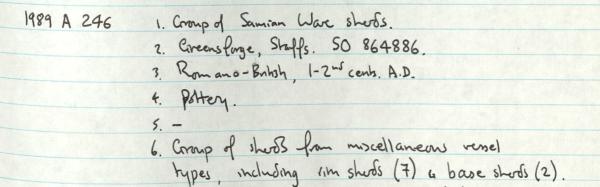 1989 A 246 1. Group of Samian Ware sherds.
2. Greensforge, Staffs. SO 864886.
3. Romano-British, 1-2nd cents. A.D.
4. Pottery.
5. -
6. Group of sherds from miscellaneous vessel
types, including rim sherds (7) & base sherds (2).